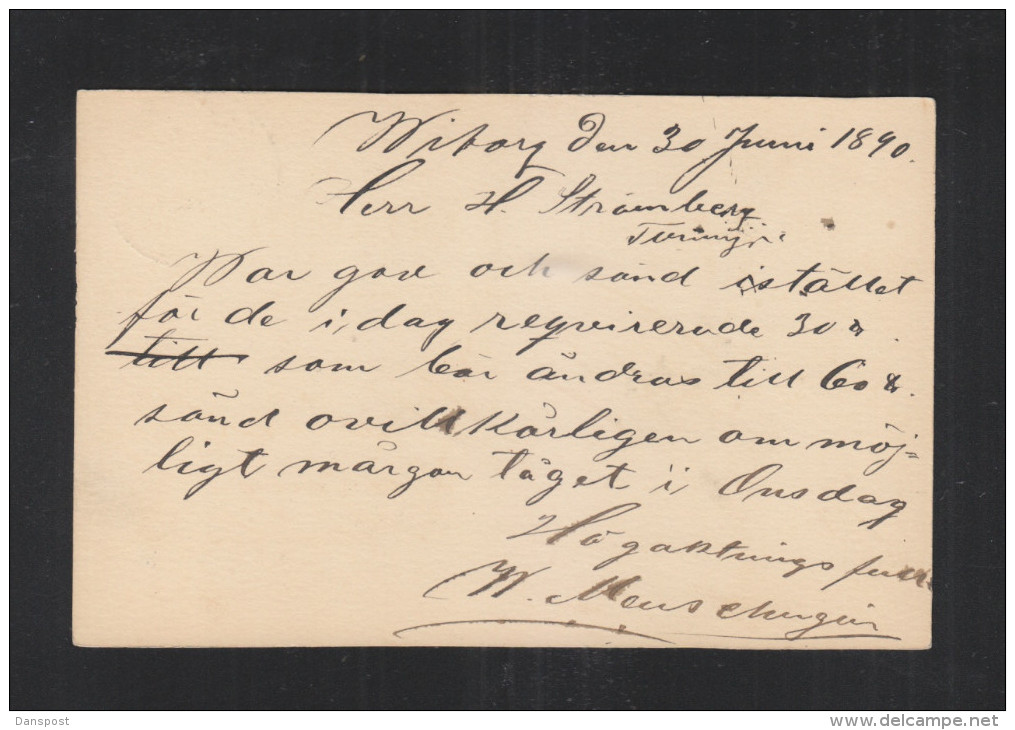 Wiborg den 30 Juni 1890.
Herr H. Strömberg
War god och sänd istället
för de i dag reqvirerade 30
till som bör ändras till 60 &.
sänd ovillkårligen om möj=
ligt mårgon tåget i Onsdag
Högaktnings fullt
W.
Danspost
delcampe.net